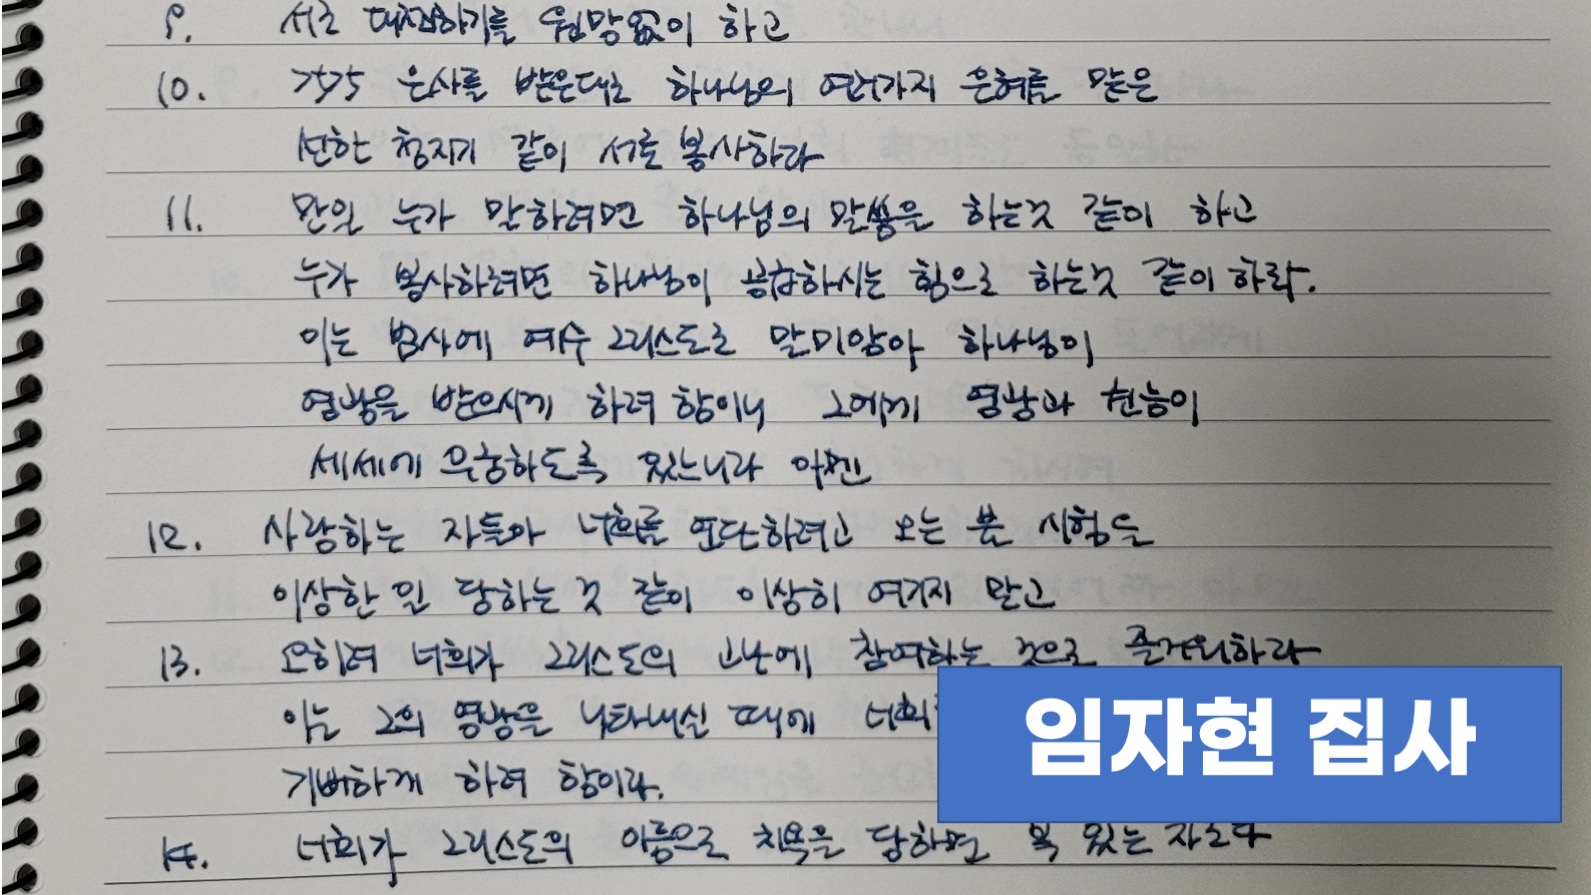 9. 서로 대접하기를 원망없이 하고
10. 각각 은사를 받은대로 하나님의 여러가지 은혜를 맡은
선한 청지기 같이 서로 봉사하라
11. 만일 누가 말하려면 하나님의 말씀을 하는것 같이 하고
누가 봉사하려면 하나님이 공급하시는 힘으로 하는것 같이 하라.
이는 범사에 예수 그리스도로 말미암아 하나님이
영광을 받으시게 하려 함이니 그에게 영광과 권능이
세세에 무궁하도록 있느니라 아멘
12. 사랑하는 자들아 너희를 연단하려고 오는 불 시험을
이상한 일 당하는 것 같이 이상히 여기지 말고
13. 오히려 너희가 그리스도의 고난에 참여하는 것으로 즐거워하라
이는 그의 영광을 나타내실 때에 너희
기뻐하게 하려 함이라.
임자현 집사
14. 너희가 그리스도의 이름으로 치욕을 당하면 복 있는 자로다